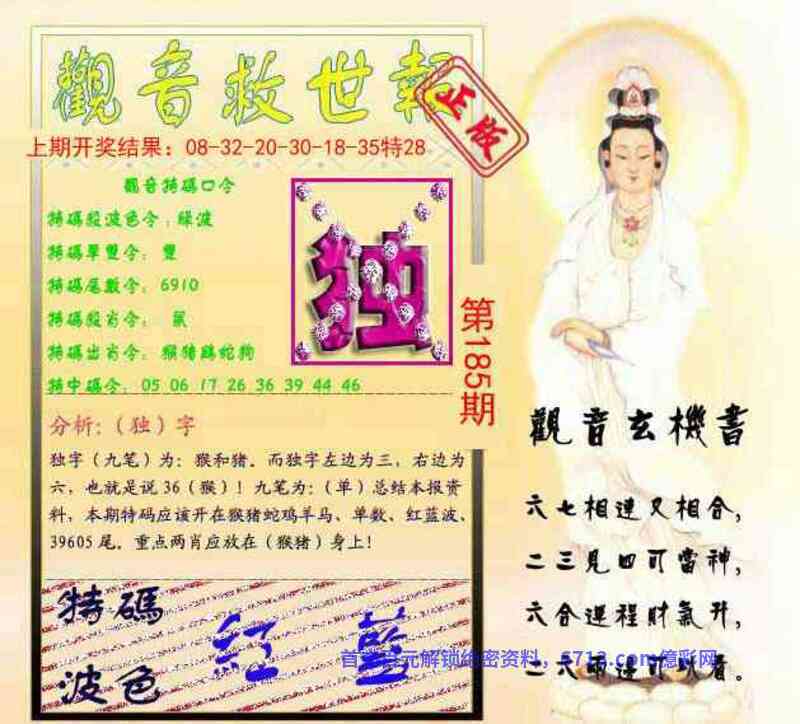 觀音救世報
正版
上期开奖结果：08-32-20-30-18-35特28
觀音特碼口令
特碼殺波色令：綠波
特碼單雙令：雙
特碼尾數令：6910
特碼殺肖令：鼠
特碼出肖令：猴猪鷄蛇狗
特中碼令：05 06 17 26 36 39 44 46
独
第185期
分析:（独）字
独字（九笔）为：猴和猪。而独字左边为三，右边为
六，也就是说36（猴）！九笔为：（单）总结本报资
料，本期特码应该开在猴猪蛇鸡羊马、单数、红蓝波、
39605尾。重点两肖应放在（猴猪）身上！
特碼
波色
紅 藍
觀音玄機書
六七相連又相合，
二三見四可當神，
六合運程財氣升，
二六兩邊可以看。